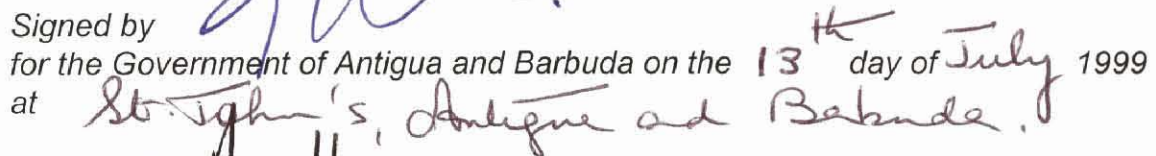 Signed by
for the Government of Antigua and Barbuda on the 13th day of July 1999
at St. John's, Antigua and Barbuda.